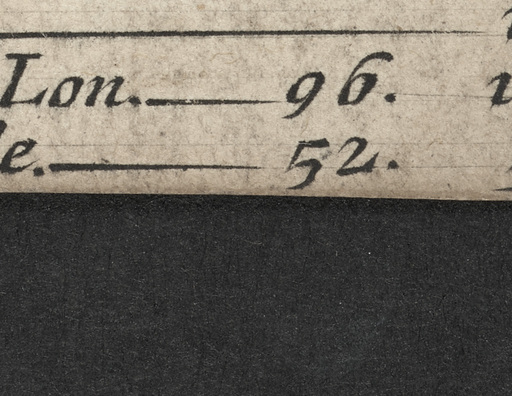 Lon. 96.
e. 52.